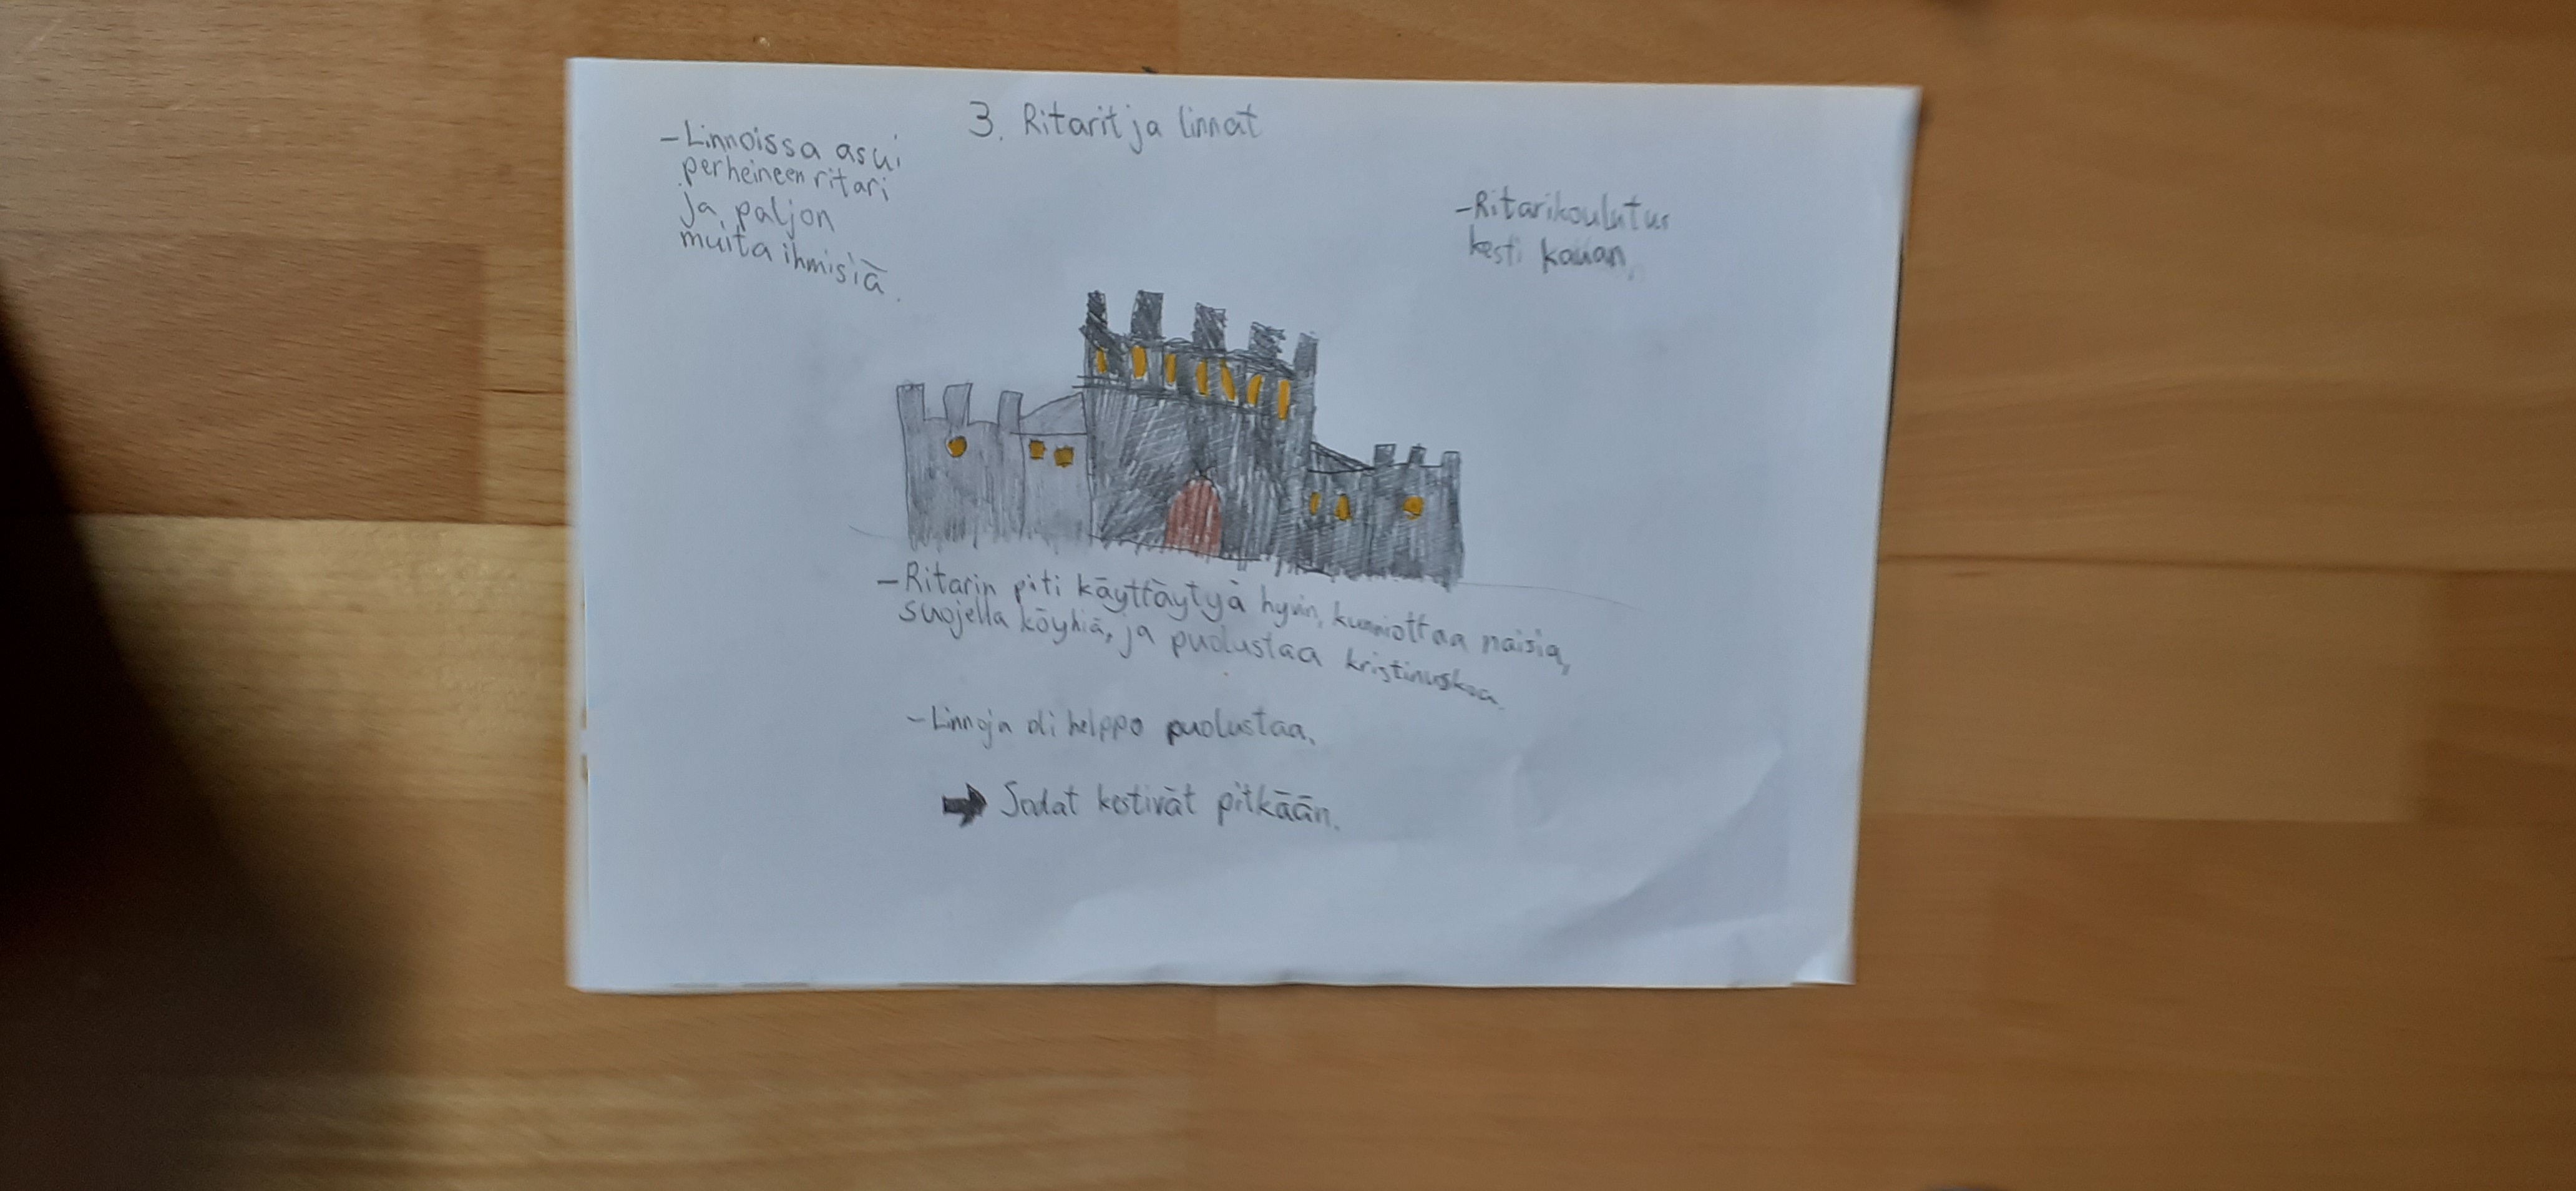 3. Ritarit ja linnat
-Linnoissa asui
perheineen ritari
ja paljon
muita ihmisiä.
-Ritarikoulutus
kesti kauan.
-Ritarin piti käyttäytyä hyvin, kunniottaa naisia,
suojella köyhiä, ja puolustaa kristinuskoa.
-Linnoja oli helppo puolustaa.
➡ Sodat kestivät pitkään.